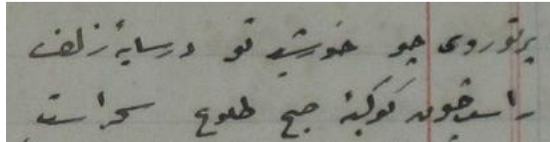 پرتو روی چو خورشید تو در سایهٔ زلف
راست چون کوکبهٔ صبح طلوع سحر است